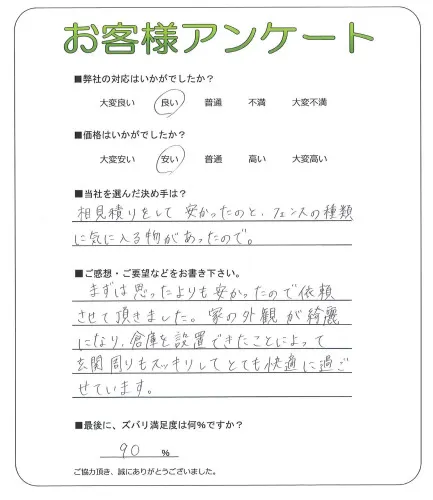 お客様アンケート
■弊社の対応はいかがでしたか？
大変良い 良い 普通 不満 大変不満
■価格はいかがでしたか？
大変安い 安い 普通 高い 大変高い
■当社を選んだ決め手は？
相見積りをして 安かったのと、フェンスの種類
に気に入る物があったので。
■ご感想・ご要望などをお書き下さい。
まずは思ったよりも安かったので依頼
させて頂きました。家の外観が綺麗
になり、倉庫を設置できたことによって
玄関周りもスッキリしてとても快適に過ご
せています。
■最後に、ズバリ満足度は何%ですか？
90 %
ご協力頂き、誠にありがとうございました。